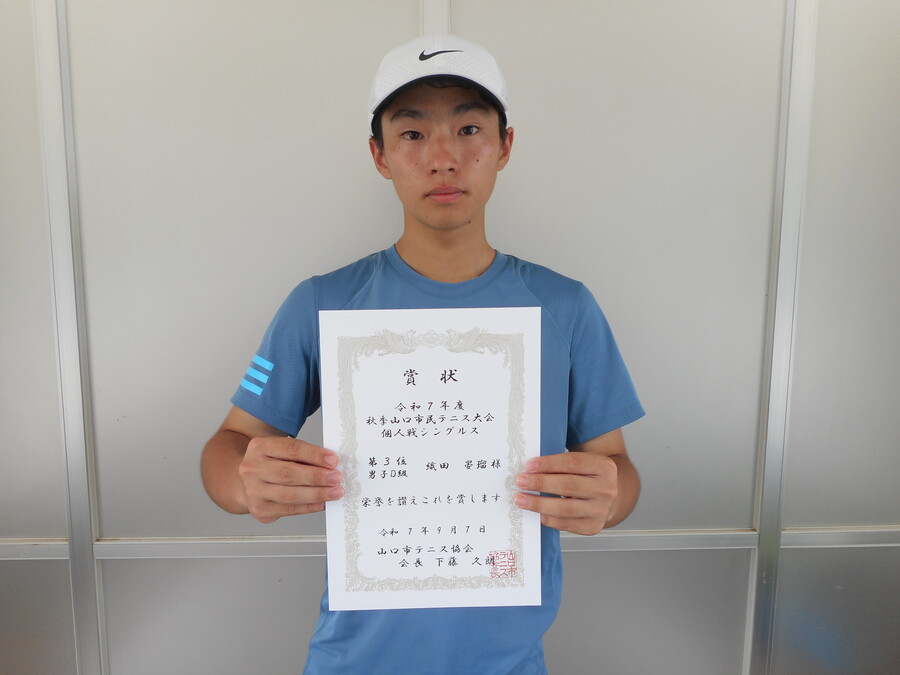 賞 状
令和7年度
秋季山口市民テニス大会
個人戦シングルス
第3位
男子D組 織田 晏瑠様
栄誉を讃えこれを賞します
令和7年9月7日
山口市テニス協会
会長 下藤 久朗